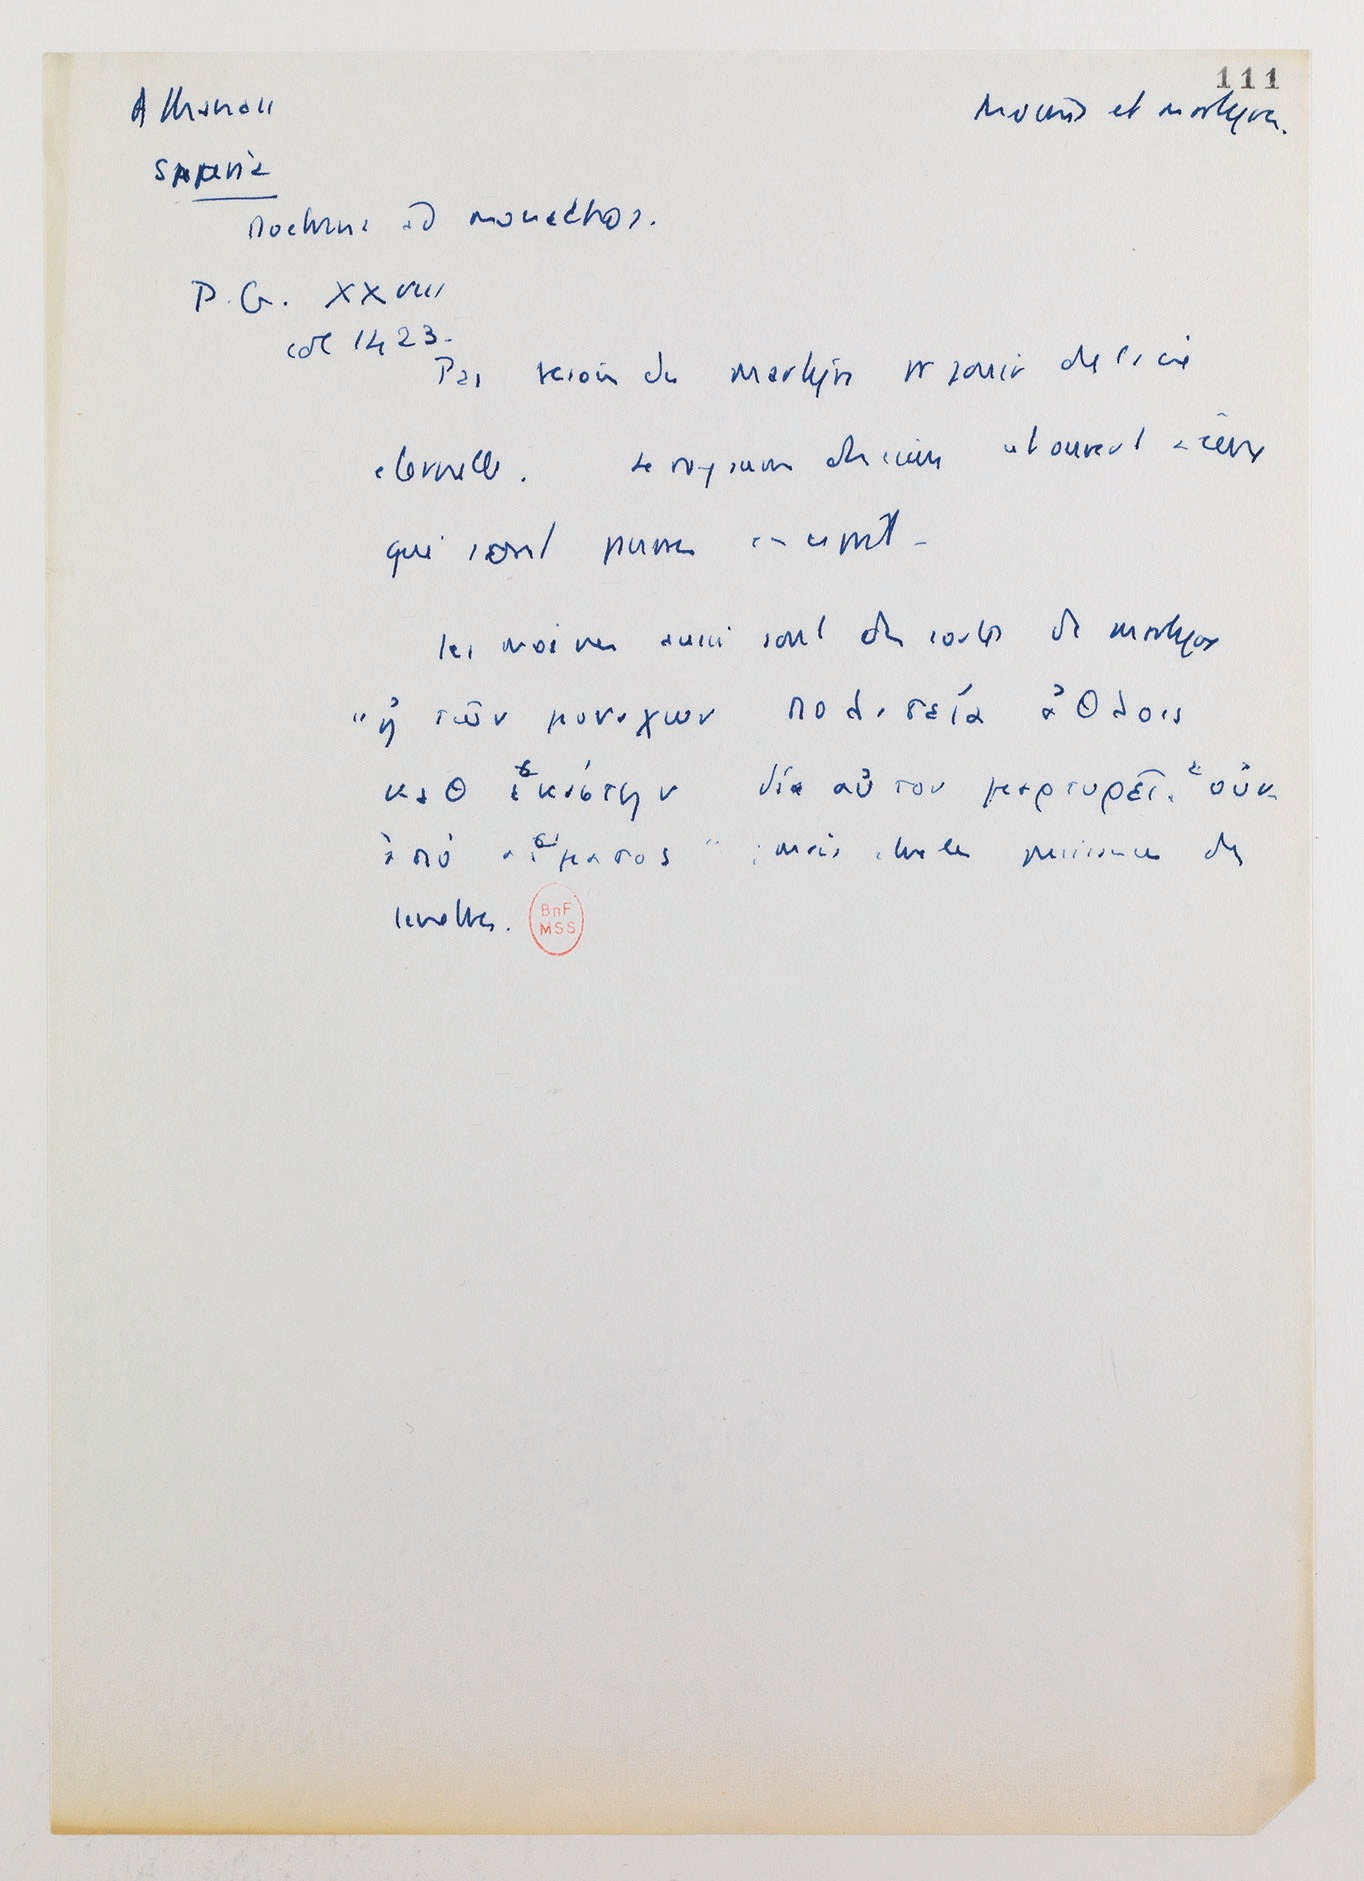 111
Athanase
Moines et martyrs.
Doctrina ad monachos.
P.G. XXVIII
col 1423.
Pas besoin du martyre pr jouir de la vie
éternelle. Le royaume des cieux est ouvert à ceux
qui sont purs en esprit.
les moines aussi sont des sortes de martyrs
"ἡ τῶν μοναχων πολιτεία ἀθλοις
καθ ἑκάστην δία αὐτον μαρτυρεῖ. οὐκ
ἀπό αἵματος" : mais
BnF
MSS